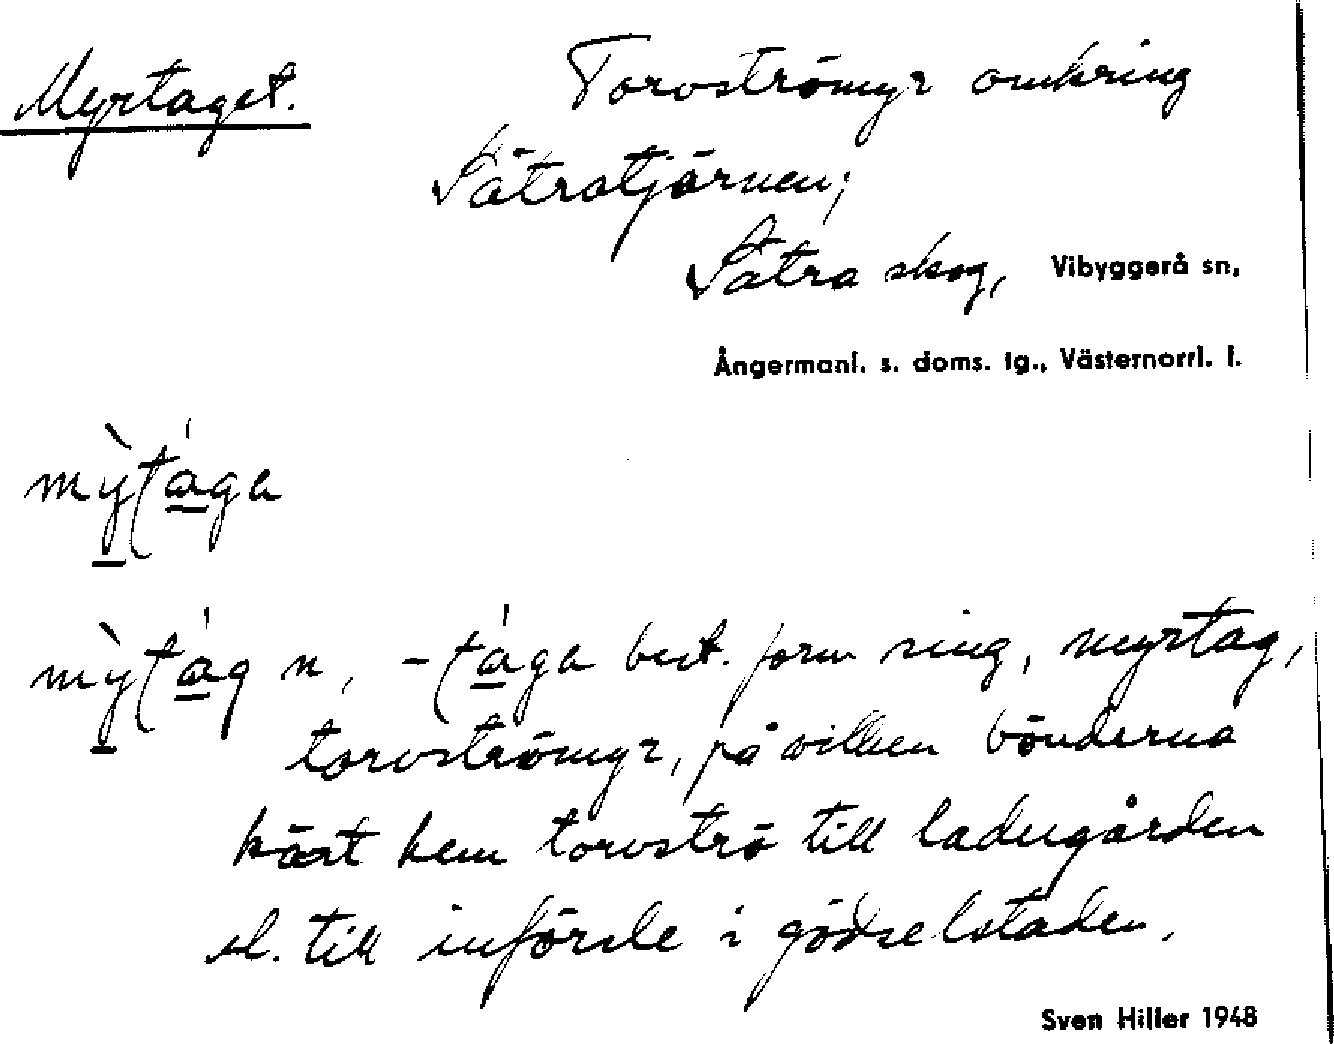 Myrtaget. Torvströmyr omkring
Sätratjärnen;
Sätra skog, Vibyggerå sn,
Ångermanl. s. doms. tg., Västernorrl. l.
mỳtága
mỳtág n, -tága best. form sing, myrtag,
torvströmyr, på vilken bönderna
kört hem torvströ till ladugården
el. till införsle i gödselstaden.
Sven Hiller 1948